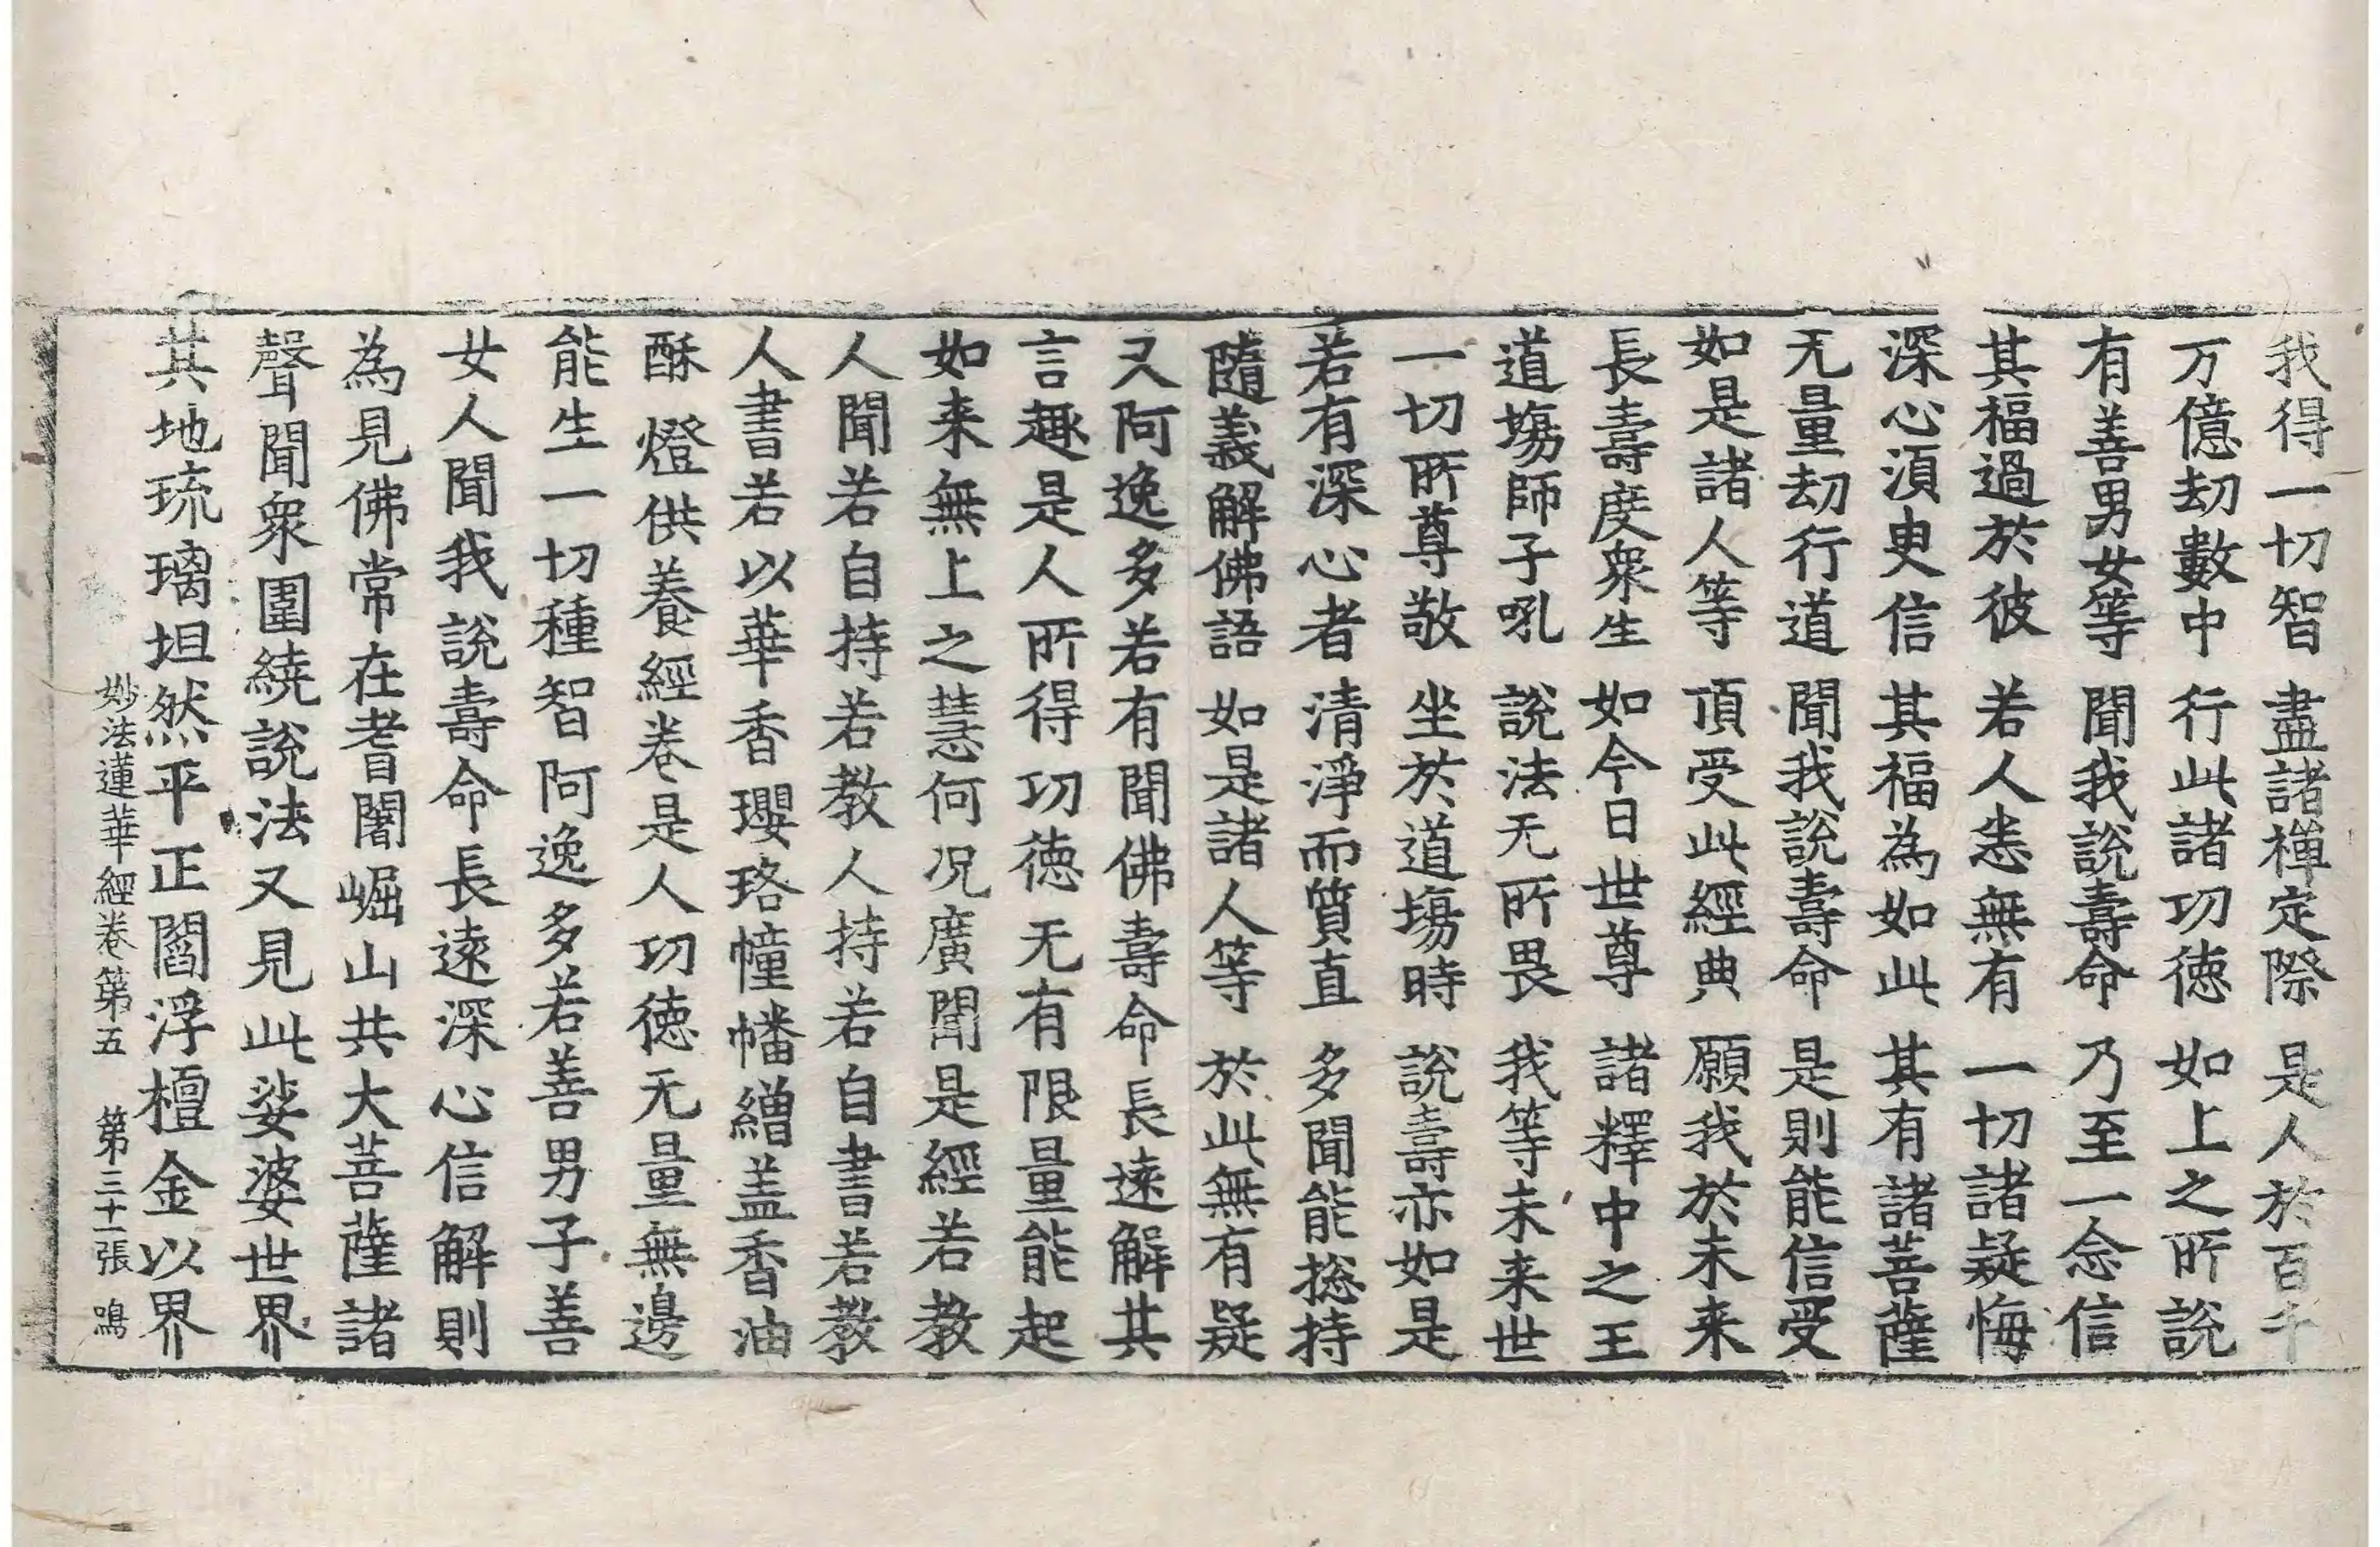 我得一切智 盡諸禅定際 是人於百千
万億劫數中 行此諸功徳 如上之所說
有善男女等 聞我說壽命 乃至一念信
其福過於彼 若人悉無有 一切諸疑悔
深心湏臾信 其福為如此 其有諸菩薩
无量劫行道 聞我說壽命 是則能信受
如是諸人等 頂受此經典 願我於未来
長壽度衆生 如今日世尊 諸釋中之王
道場師子吼 說法无所畏 我等未来世
一切所尊敬 坐於道場時 說壽亦如是
若有深心者 清淨而質直 多聞能揔持
隨義解佛語 如是諸人等 於此無有疑
又阿逸多若有聞佛壽命長遠解其
言趣是人所得功徳无有限量能起
如来無上之慧何况廣聞是經若教
人聞若自持若教人持若自書若教
人書若以華香瓔珞幢幡繒盖香油
酥燈供養經卷是人功徳无量無邊
能生一切種智阿逸多若善男子善
女人聞我說壽命長遠深心信解則
為見佛常在耆闍崛山共大菩薩諸
聲聞衆圍繞說法又見此娑婆世界
其地琉璃坦然平正閻浮檀金以界
妙法蓮華經卷第五 第三十一張 鳴